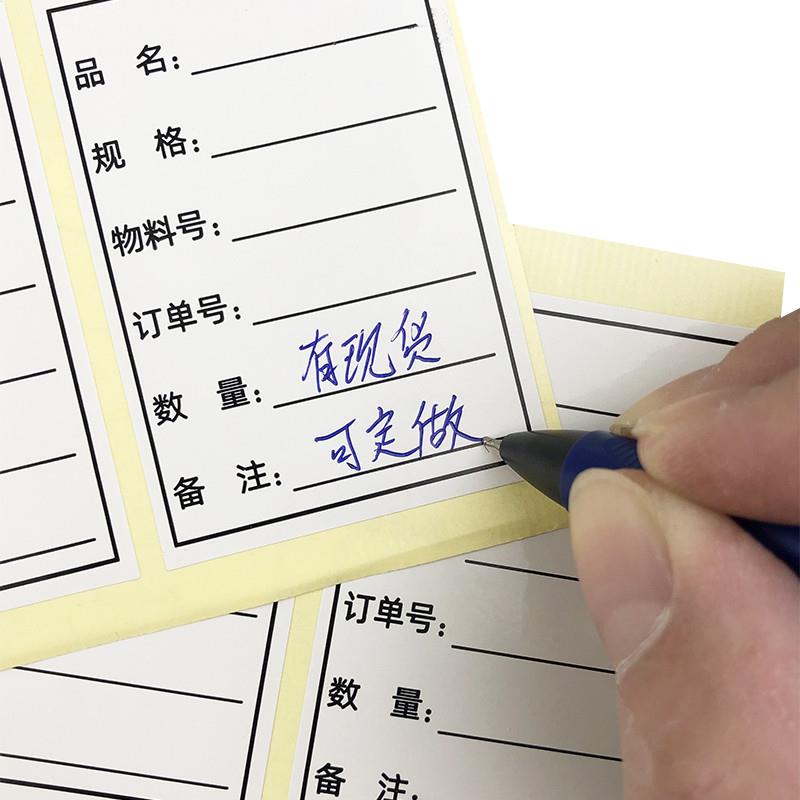 品 名：
规 格：
物料号：
订单号：
数 量：有现货
备 注：可定做
订单号：
数 量：
备 注：